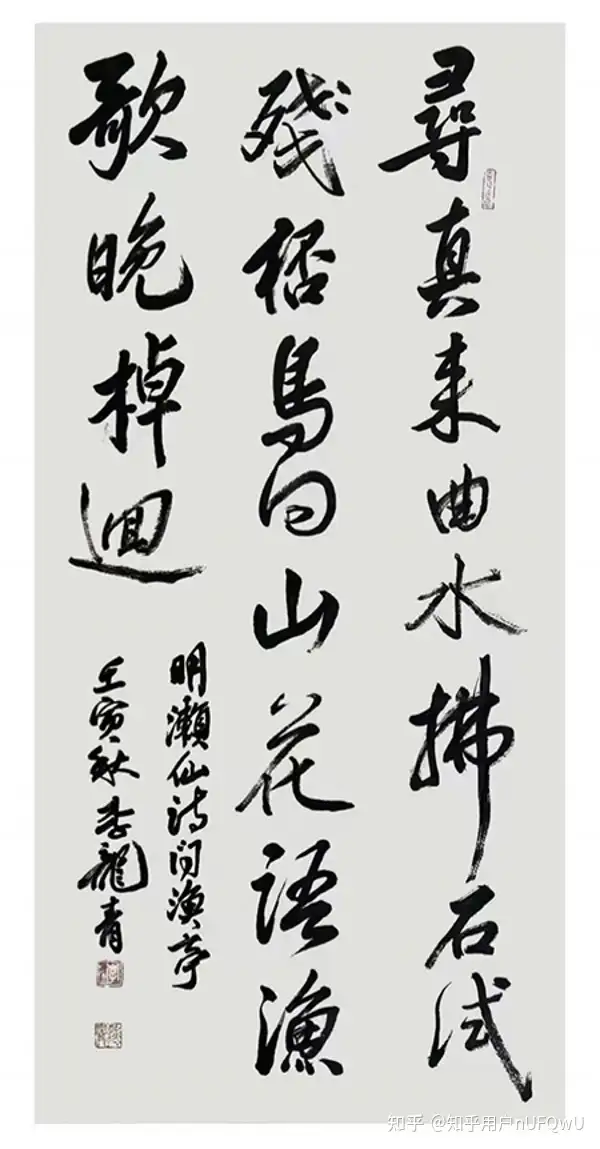 尋真来曲水拂石試
殘桮鳥向山花語漁
歌晚棹迴
明瀨仙詩問漁亭
壬寅秋李龍青
知乎 @知乎用户nUFQwU